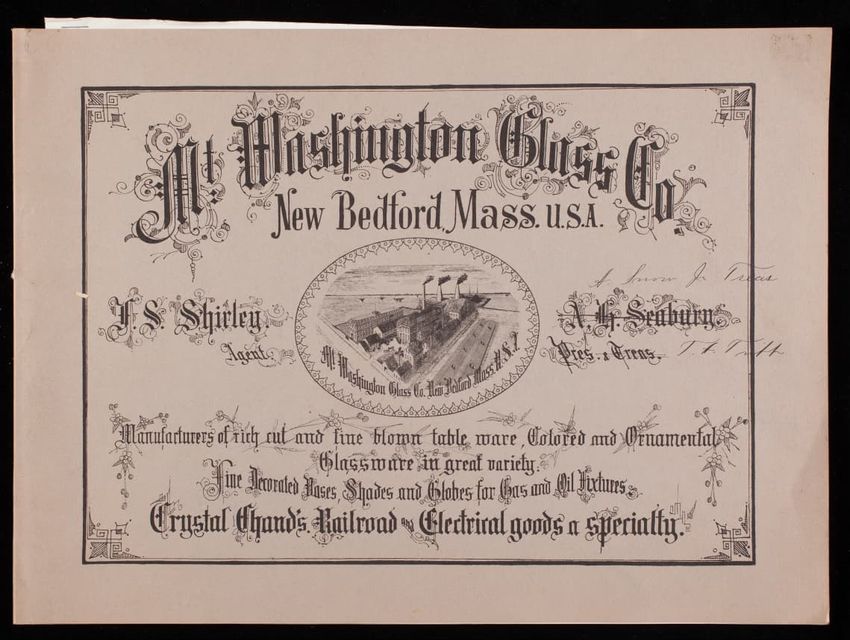 Mt. Washington Glass Co.
New Bedford, Mass. U.S.A.
A Snow Jr Treas
F. S. Shirley,
Agent.
A. H. Seabury.
Pres. & Treas.
Mt. Washington Glass Co. New Bedford Mass. U.S.A.
Manufacturers of rich cut and fine blown table ware, Colored and Ornamental
Glassware in great variety.
Fine Decorated Vases, Shades and Globes for Gas and Oil Fixtures.
Crystal Chand's. Railroad and Electrical goods a specialty.